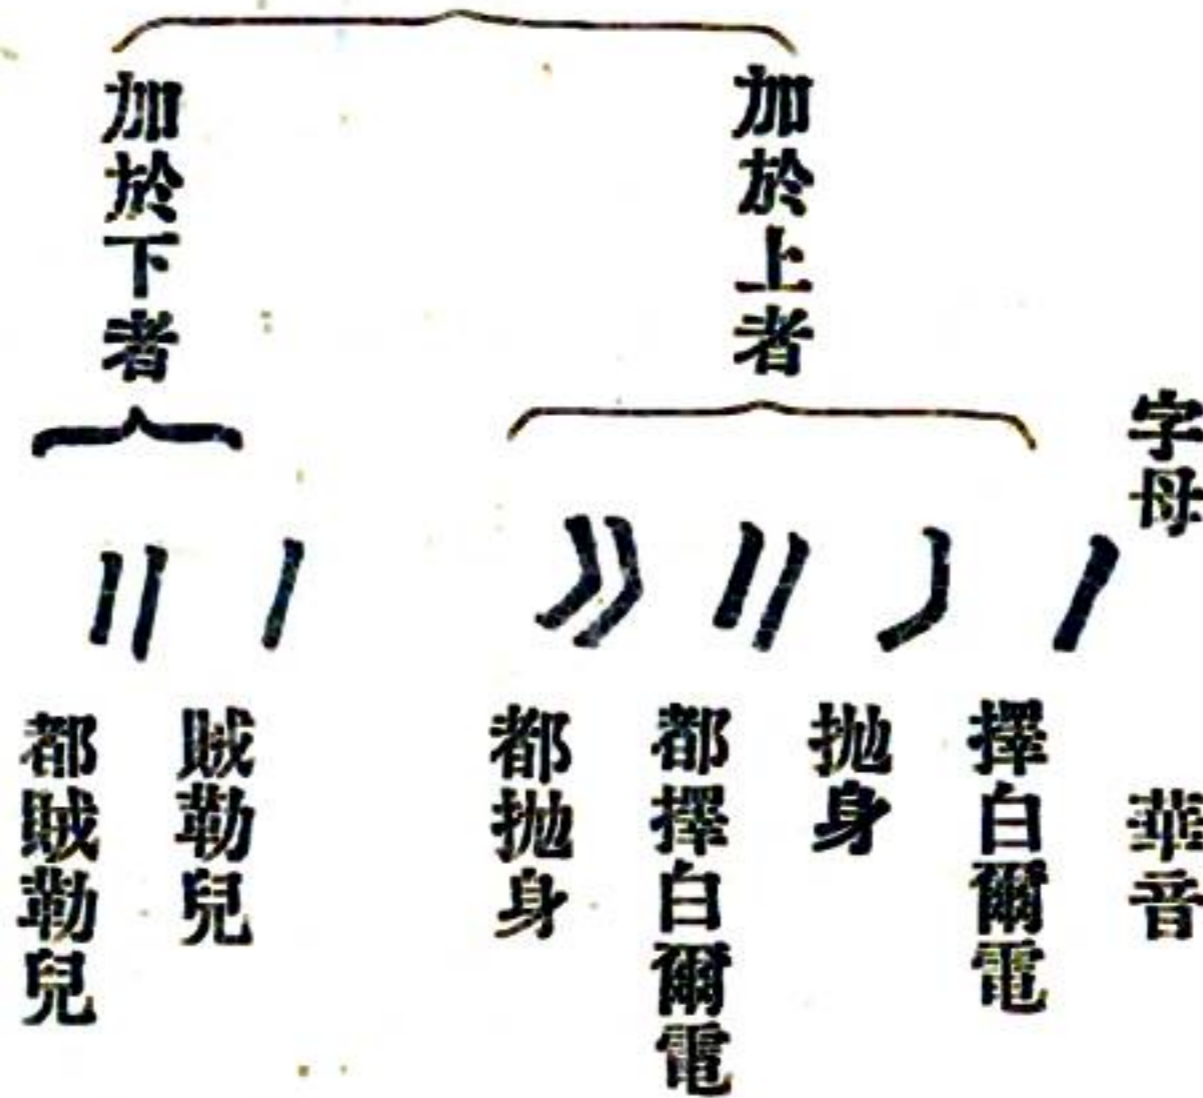 字母 華音
加於上者
擇白爾電
拋身
都擇白爾電
都拋身
加於下者
賊勒兒
都賊勒兒